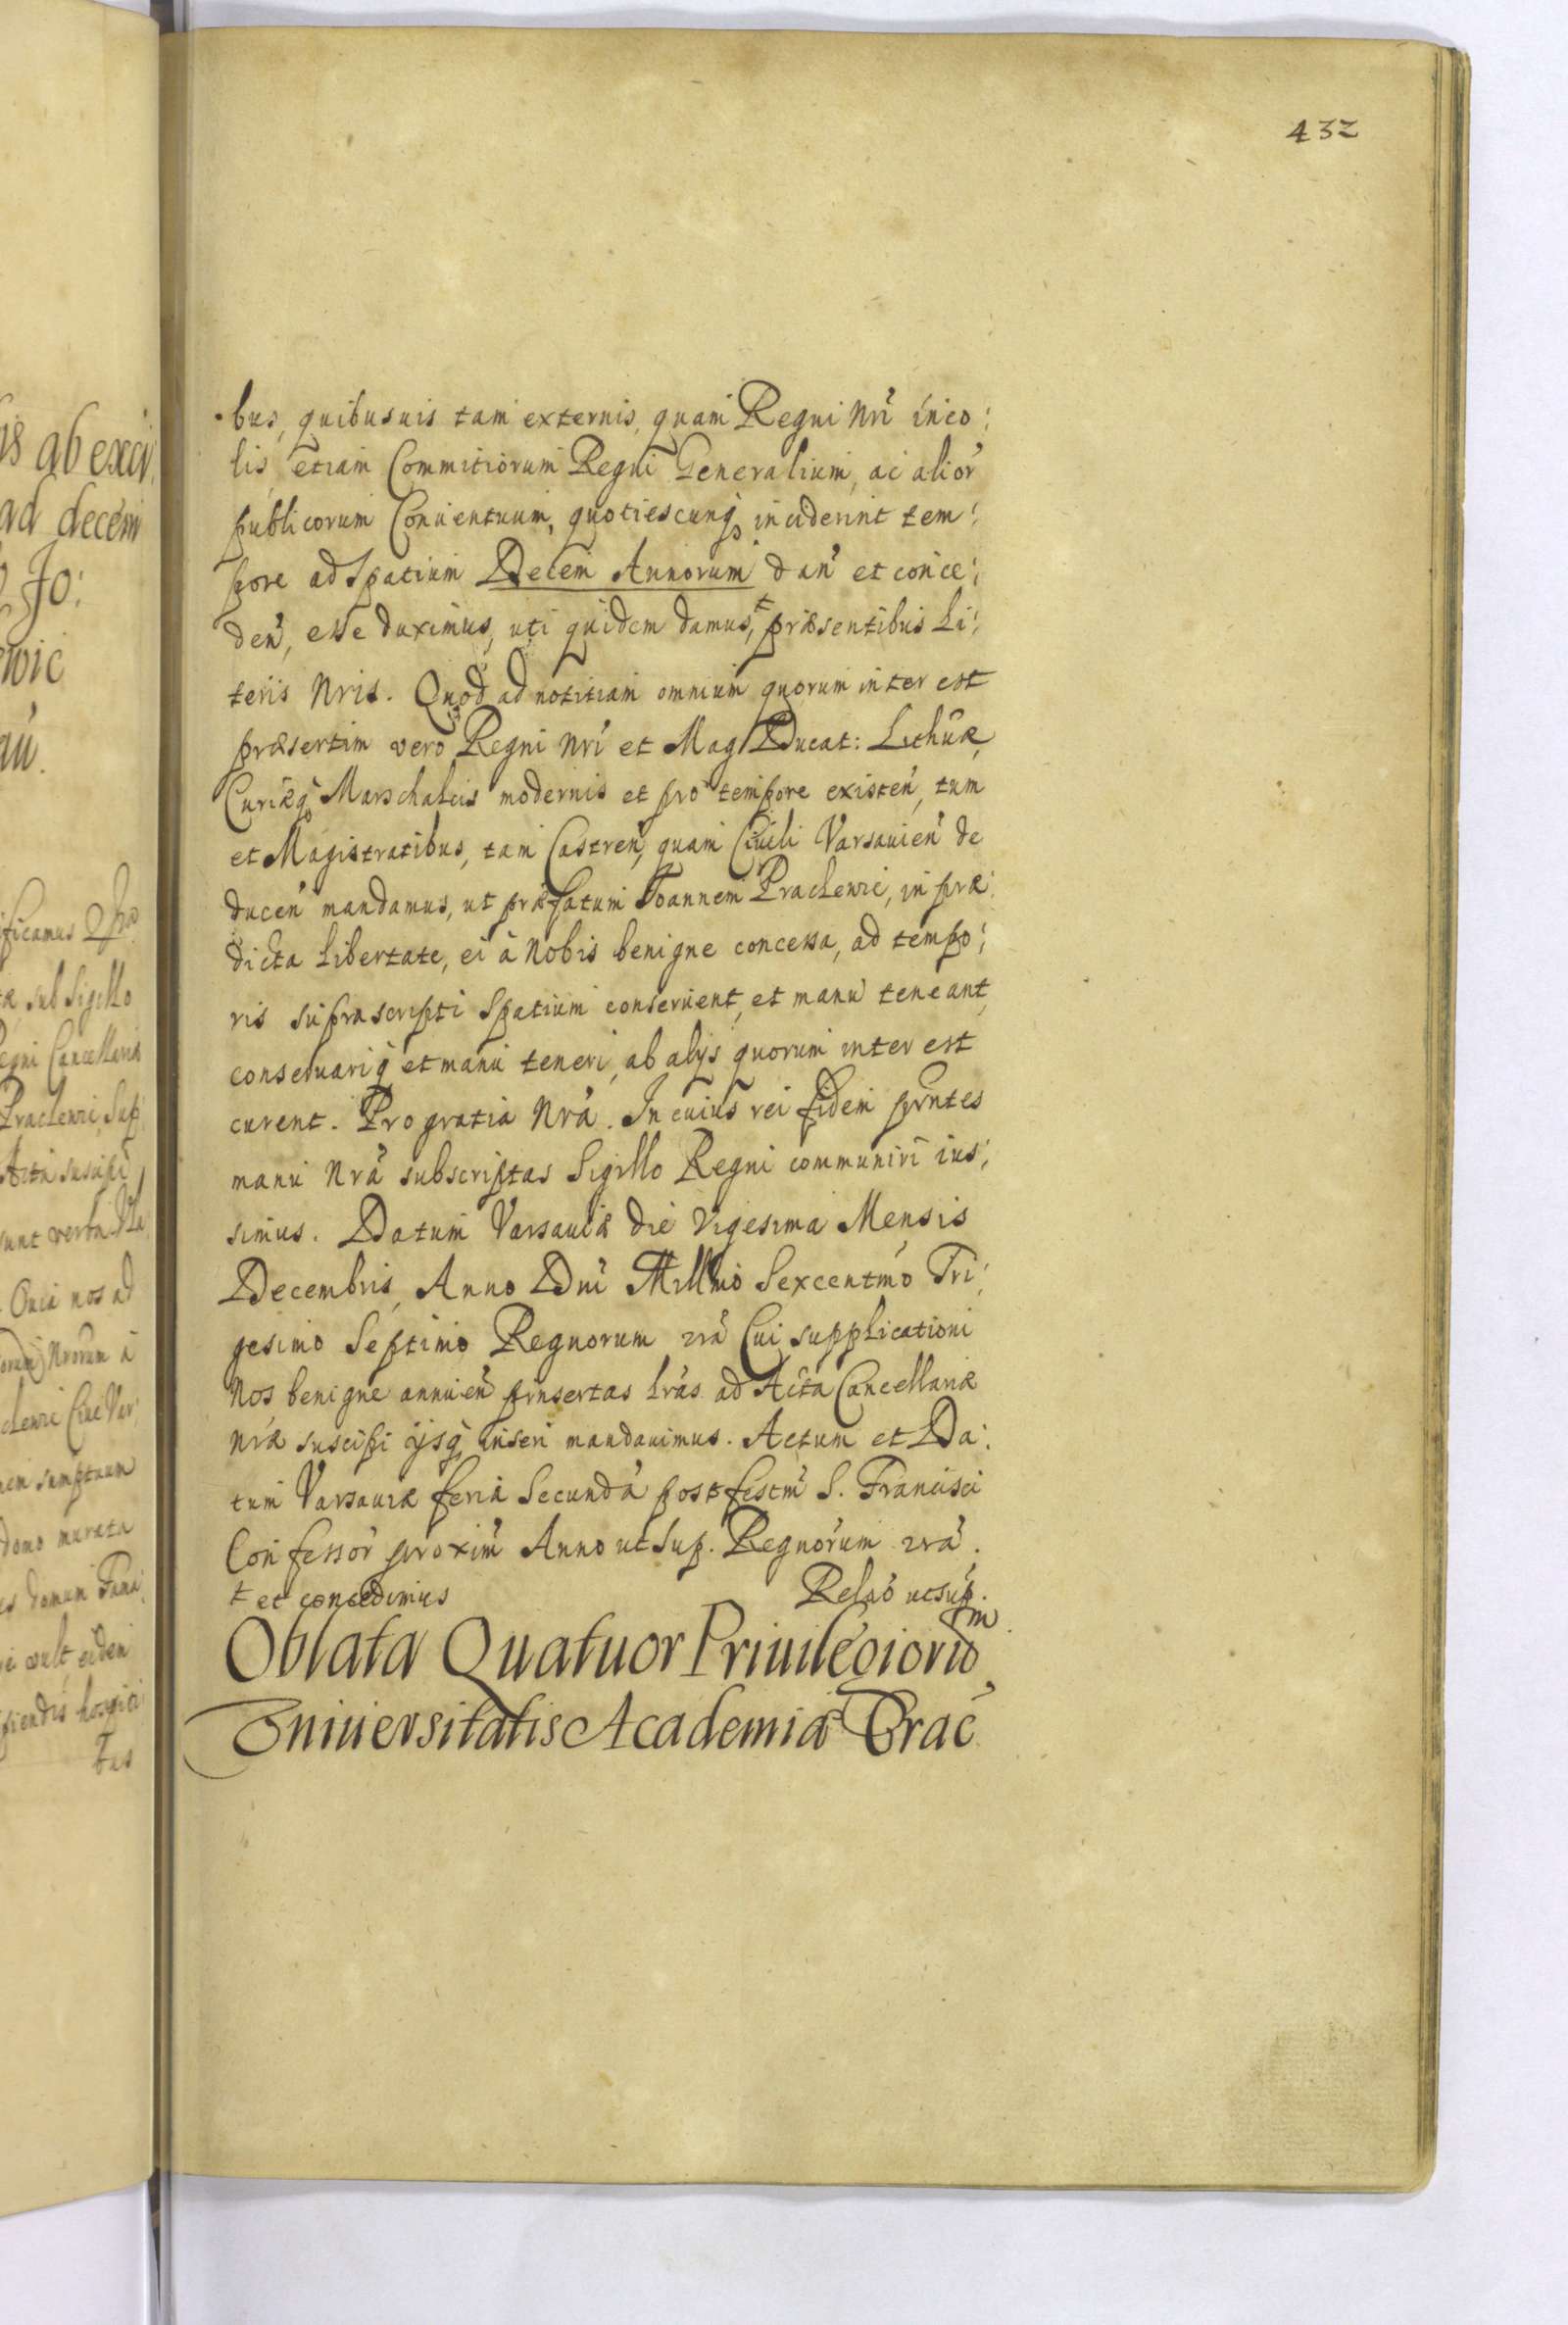 432
bus, quibusuis tam externis, quam Regni Nri inco:
lis, etiam Commitiorum Regni Generalium, ac alior
publicorum Conuentuum, quotiescunq inciderint tem:
pore ad Spatium Decem Annorum dan et conce:
den, esse duximus, uti quidem damus, ŧ præsentibus Li:
teris Nris. Quod ad notitiam omnium quorum inter est
præsertim vero Regni Nri et Mag Ducat: Lithuæ,
Curiæq Marschalcis modernis et pro tempore existen, tum
et Magistratibus, tam Castren, quam Ciuili Varsauien de
ducen mandamus, ut præfatum Joannem Prackewic, in præ:
dicta libertate, ei à Nobis benigne concessa, ad tempo:
ris suprascripti Spatium conseruent, et manu teneant,
conseruariq et manu teneri, ab alys quorum inter est
curent. Pro gratia Nrâ. In cuius rei fidem prntes
manu Nrâ subscriptas Sigillo Regni communiri ius:
simus. Datum Varsauiæ die Vigesima Mensis
Decembris, Anno Dni Millmo Sexcentmo Tri:
gesimo Septimo Regnorum Cui supplicationi
Nos benigne annuen prnsertas lras ad Acta Cancellariæ
Nræ suscipi ijsq inseri mandauimus. Actum et Da:
tum Varsauiæ feriâ Secundâ post festm S. Francisci
Confessor proxim Anno ut sup. Regnorum
ŧ et concedimus Relao ut sup.
Oblata Quatuor Priuilegiorum
Vniuersitatis Academiæ Crac
is ab exci:
ad decem
Jo:
ewic
ificamus
sub Sigillo
Regni Cancellariæ
Prackewic, Sup
Acta suscipi
sunt verba Vla
Quia nos ad
Nrorum à
Ciue Var:
sumptuum
domo murata
domum
vult eidem
hospici
tus